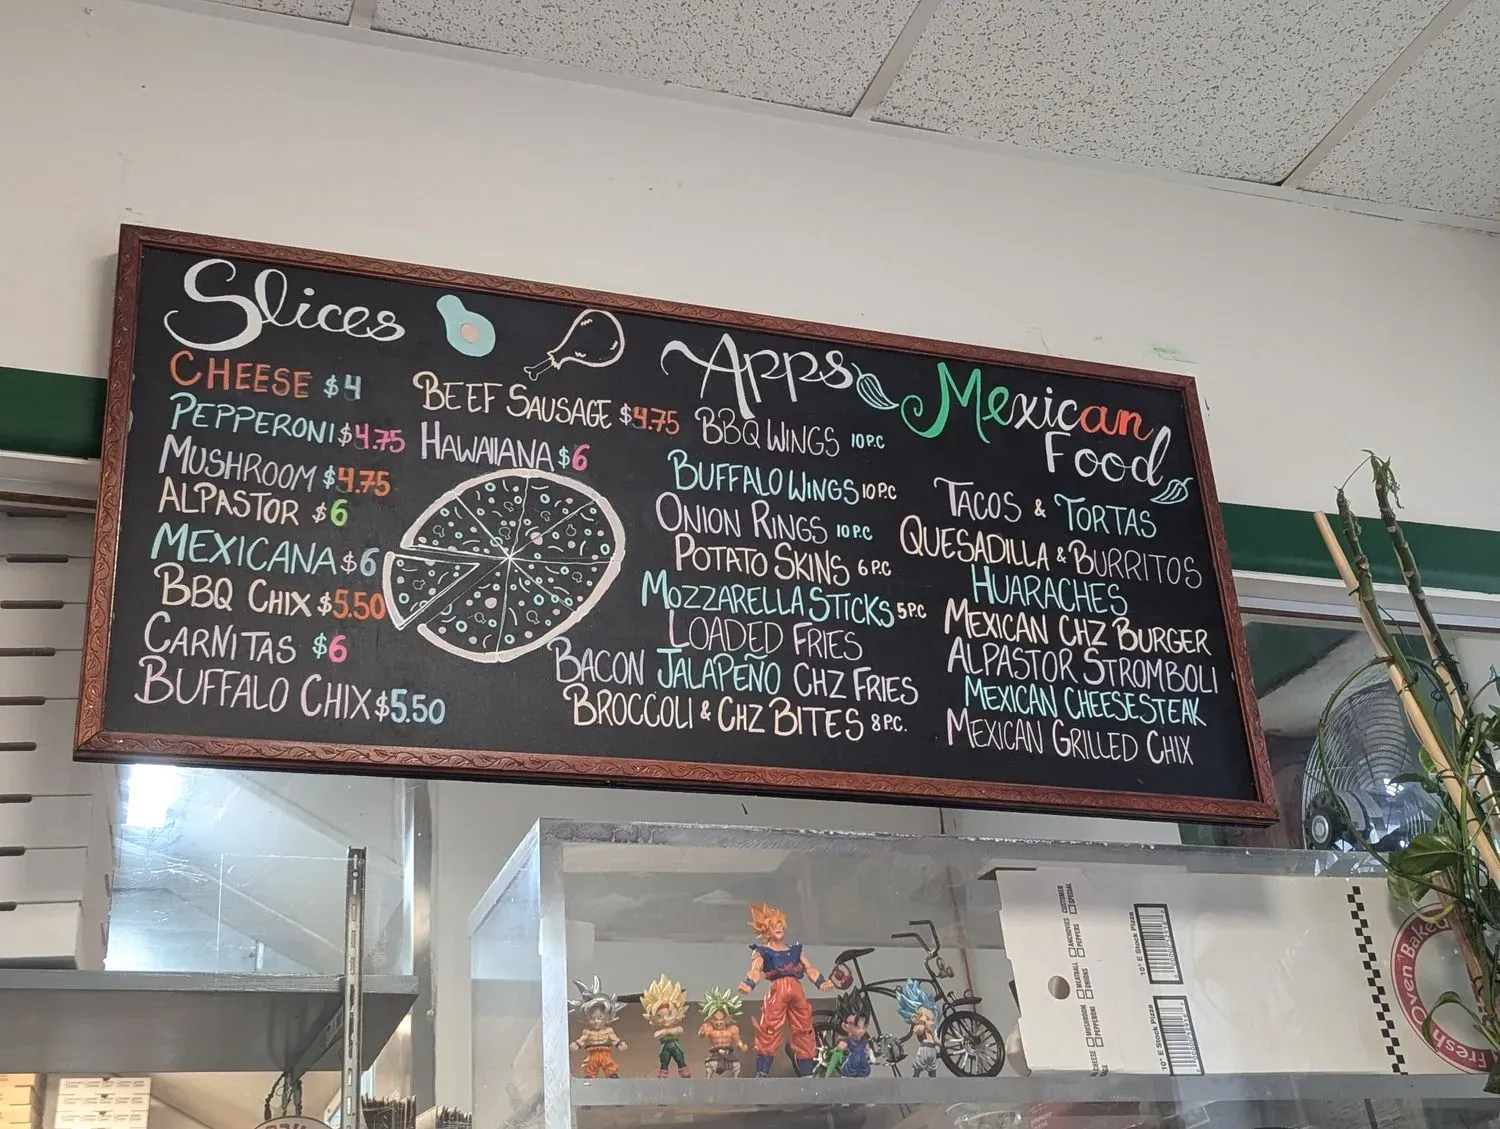 Slices
CHEESE $4
PEPPERONI $4.75
MUSHROOM $4.75
ALPASTOR $6
MEXICANA $6
BBQ CHIX $5.50
CARNITAS $6
BUFFALO CHIX $5.50
BEEF SAUSAGE $4.75
HAWAIIANA $6
Apps
BBQ WINGS 10 P.C
BUFFALO WINGS 10 P.C
ONION RINGS 10 P.C
POTATO SKINS 6 P.C
MOZZARELLA STICKS 5 P.C
LOADED FRIES
BACON JALAPEÑO CHZ FRIES
BROCCOLI & CHZ BITES 8 P.C.
Mexican
Food
TACOS & TORTAS
QUESADILLA & BURRITOS
HUARACHES
MEXICAN CHZ BURGER
ALPASTOR STROMBOLI
MEXICAN CHEESESTEAK
MEXICAN GRILLED CHIX
CUSTOMER
SPECIAL
ANCHOVIES
PEPPERS
MEATBALL
ONIONS
MUSHROOM
PEPPERONI
10" E Stock Pizza
10" E Stock Pizza
Fresh Oven Baked